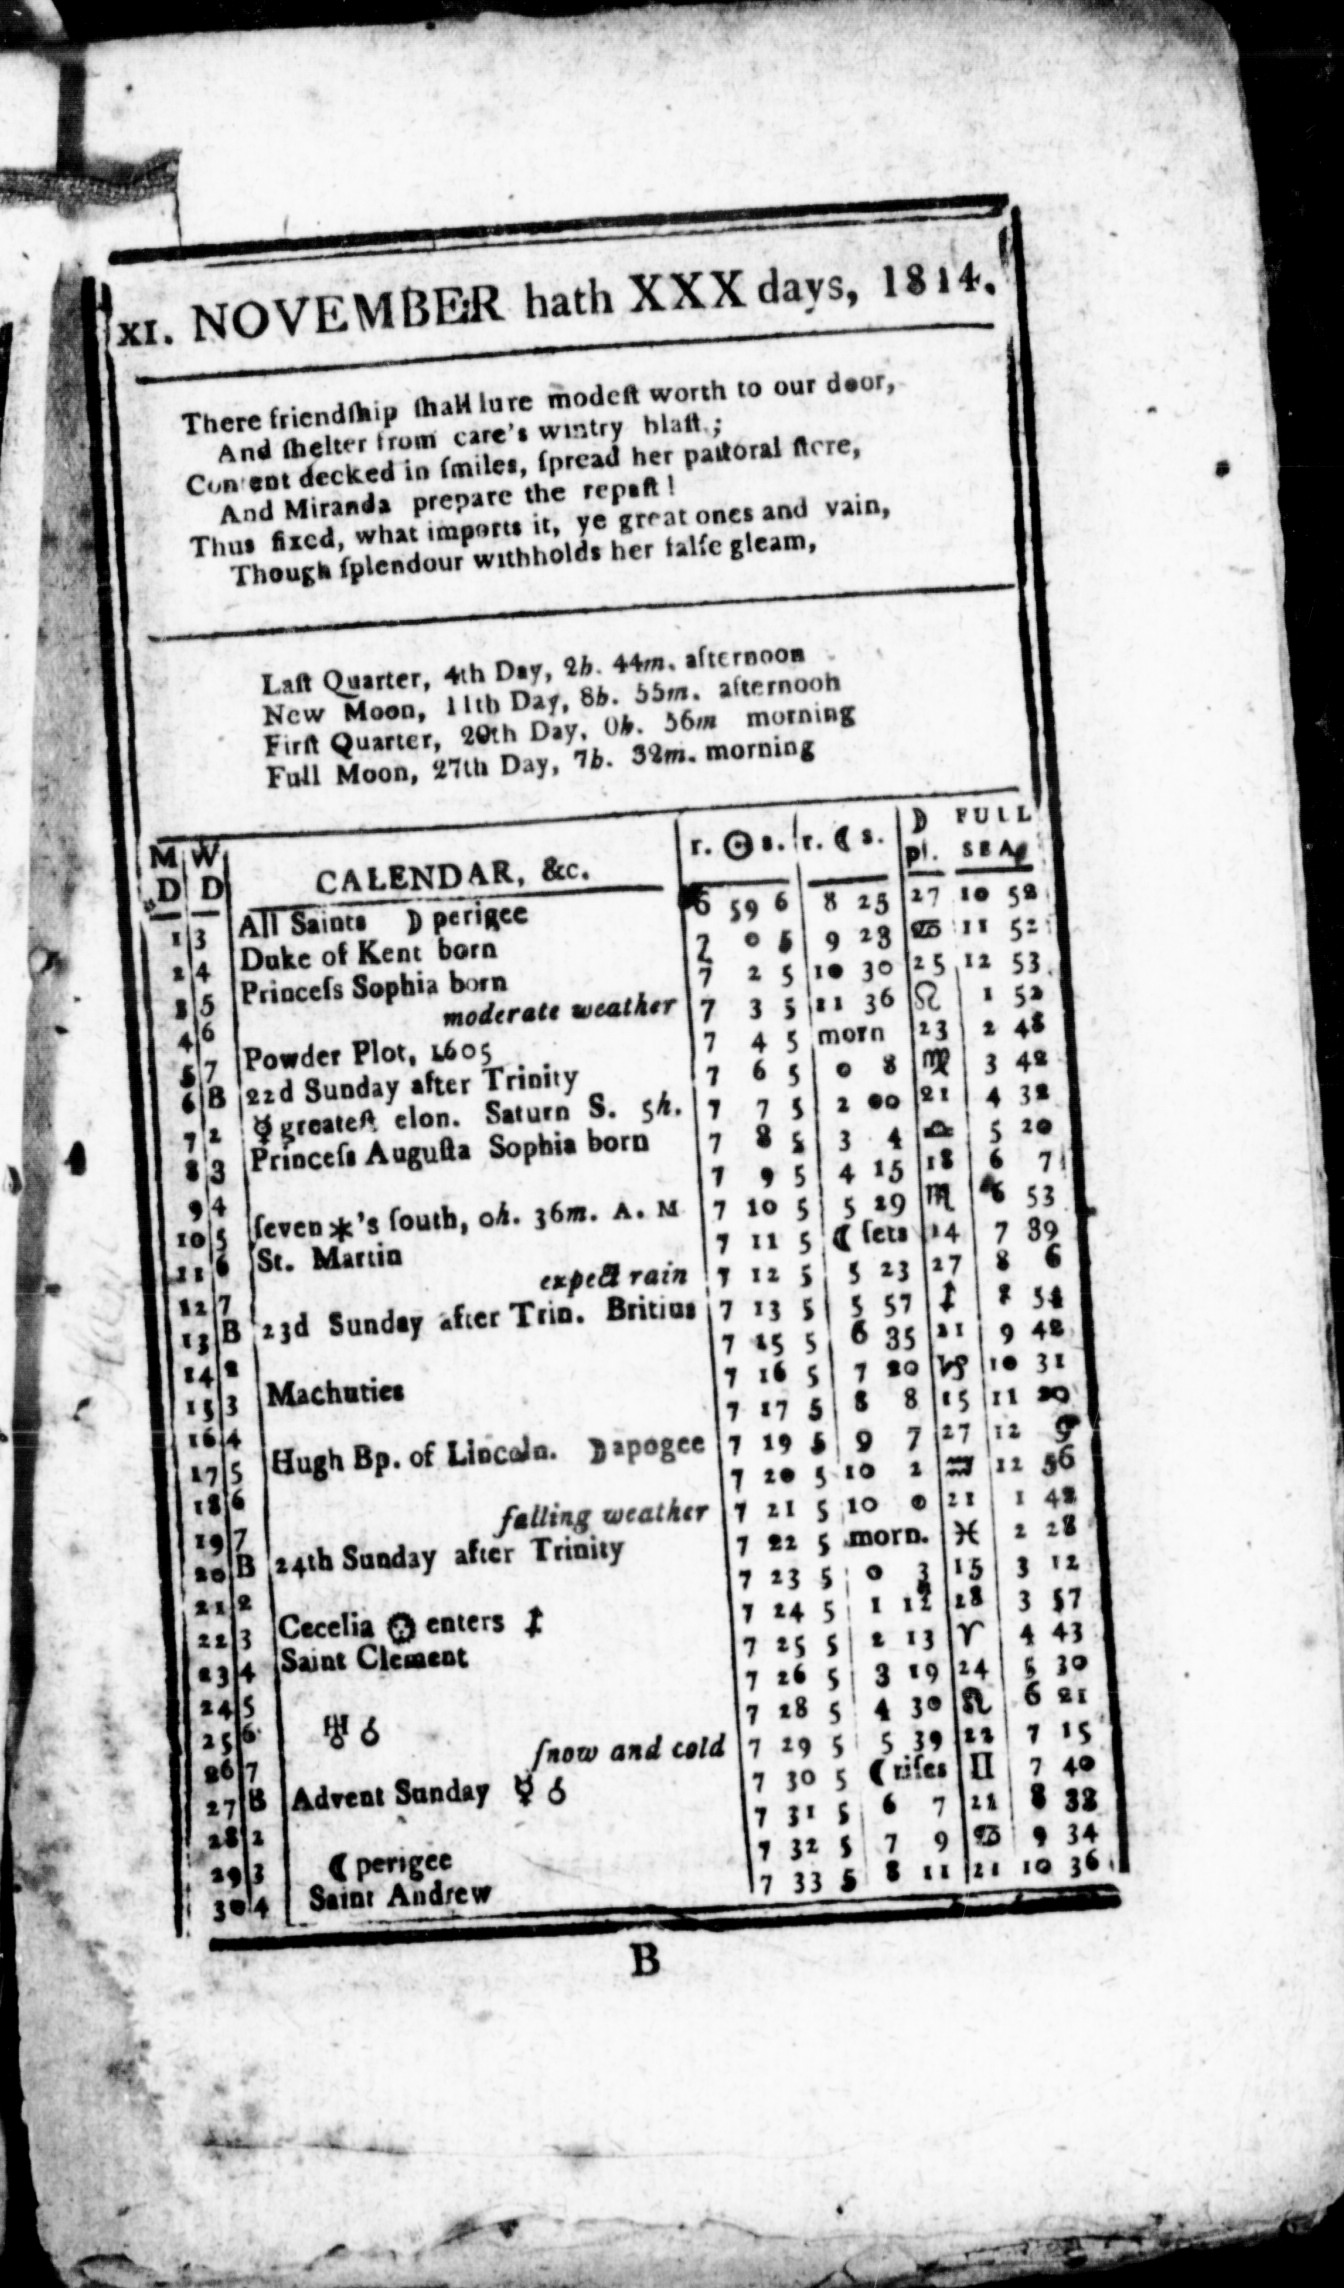 XI. NOVEMBER hath XXX days, 1814.
There friendſhip ſhall lure modeſt worth to our door,
And ſhelter from care's wintry blaſt;
Content decked in ſmiles, ſpread her paſtoral ſtore,
And Miranda prepare the repaſt!
Thus fixed, what imports it, ye great ones and vain,
Though ſplendour withholds her falſe gleam,
Laſt Quarter, 4th Day, 2h. 44m. afternoon
New Moon, 11th Day, 8h. 55m. afternoon
Firſt Quarter, 20th Day, 0h. 56m morning
Full Moon, 27th Day, 7h. 32m. morning
M D | W D | CALENDAR, &c. | r. ☉ s. | r. ☾ s. | ☽ pl. | FULL SEA
1 | 3 | All Saints ☽ perigee | 6 59 6 | 8 25 | 27 | 10 52
2 | 4 | Duke of Kent born | 7 0 5 | 9 28 | ♋ | 11 52
3 | 5 | Princeſs Sophia born | 7 2 5 | 10 30 | 25 | 12 53
4 | 6 | moderate weather | 7 3 5 | 11 36 | ♌ | 1 52
5 | 7 | Powder Plot, 1605 | 7 4 5 | morn | 23 | 2 48
6 | B | 22d Sunday after Trinity | 7 6 5 | 0 8 | ♍ | 3 42
7 | 2 | ☿ greateſt elon. Saturn S. 5h. | 7 7 5 | 2 00 | 21 | 4 32
8 | 3 | Princeſs Auguſta Sophia born | 7 8 5 | 3 4 | ♎ | 5 20
9 | 4 | 7 9 5 | 4 15 | 18 | 6 7
10 | 5 | ſeven ✶'s ſouth, 0h. 36m. A. M | 7 10 5 | 5 29 | ♏ | 6 53
11 | 6 | St. Martin | 7 11 5 | ☾ ſets | 14 | 7 39
12 | 7 | expect rain | 7 12 5 | 5 23 | 27 | 8 6
13 | B | 23d Sunday after Trin. Britius | 7 13 5 | 5 57 | ♐ | 8 54
14 | 2 | 7 15 5 | 6 35 | 21 | 9 42
15 | 3 | Machuties | 7 16 5 | 7 20 | ♑ | 10 31
16 | 4 | 7 17 5 | 8 8 | 15 | 11 20
17 | 5 | Hugh Bp. of Lincoln. ☽ apogee | 7 19 5 | 9 7 | 27 | 12 9
18 | 6 | 7 20 5 | 10 2 | ♒ | 12 56
19 | 7 | falling weather | 7 21 5 | 10 0 | 21 | 1 42
20 | B | 24th Sunday after Trinity | 7 22 5 | morn. | ♓ | 2 28
21 | 2 | 7 23 5 | 0 3 | 15 | 3 12
22 | 3 | Cecelia ☉ enters ♐ | 7 24 5 | 1 12 | 28 | 3 57
23 | 4 | Saint Clement | 7 25 5 | 2 13 | ♈ | 4 43
24 | 5 | 7 26 5 | 3 19 | 24 | 5 30
25 | 6 | ♅ ☌ | 7 28 5 | 4 30 | 6 21
26 | 7 | ſnow and cold | 7 29 5 | 5 39 | 22 | 7 15
27 | B | Advent Sunday ☿ ☌ | 7 30 5 | ☾ riſes | ♊ | 7 40
28 | 2 | 7 31 5 | 6 7 | 22 | 8 38
29 | 3 | ☾ perigee | 7 32 5 | 7 9 | ♋ | 9 34
30 | 4 | Saint Andrew | 7 33 5 | 8 11 | 21 | 10 36
B